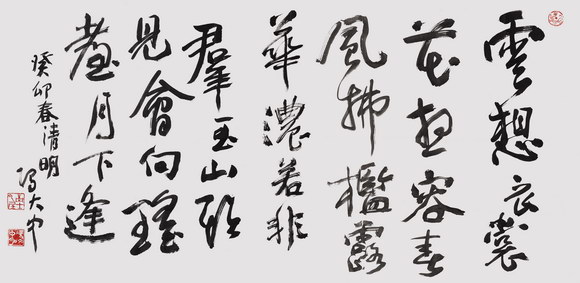 雲想衣裳
花想容春
風拂檻露
華濃若非
羣玉山頭
見會向瑤
臺月下逢
癸卯春清明
冯大中